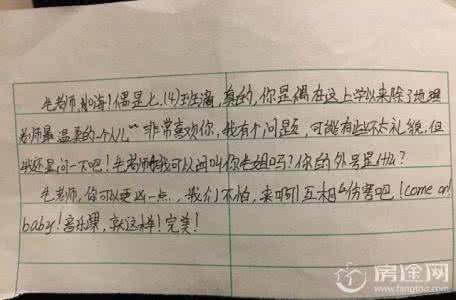 毛老师,嗨!偶是七.(4)班滴,真的,你是偶在这上学以来除了地理
老师最温柔的一个人儿^^非常喜欢你,我有个问题,可能有些不太礼貌,但
我还是问一下吧!毛老师我可以叫你毛姐吗?你的外号是什么?
毛老师,你可以更凶一点,我们不怕,来啊!互相伤害吧!come on!
baby!音乐课,就这样!完美!
房途网
www.fangtoo.com